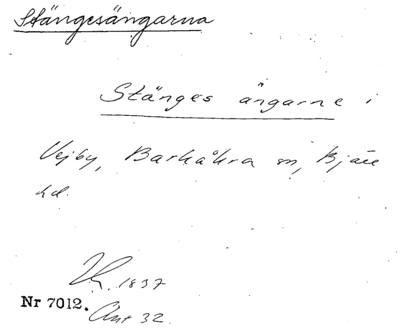 Stängesängarna
Stänges ängarne i
Vejby, Barkåkra sn, Bjäre
hd.
1837
Nr 7012. Akt 32.